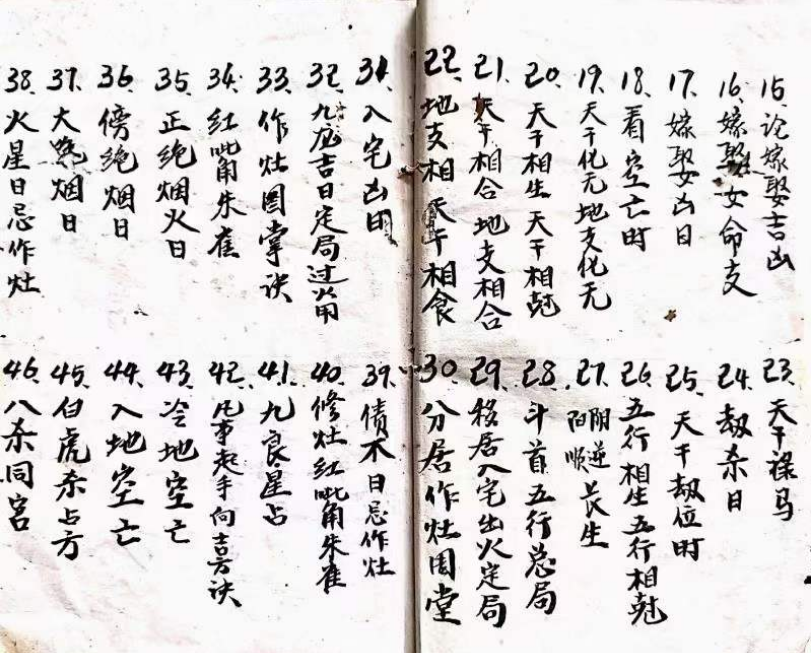 15. 论嫁娶吉凶
16. 嫁娶女命支
17. 嫁娶女凶日
18. 看空亡时
19. 天干化无地支化无
20. 天干相生天干相尅
21. 天干相合地支相合
22. 地支相 天干相食
23. 天干禄马
24. 劫杀日
25. 天干劫位时
26. 五行相生五行相尅
27. 阴逆阳顺长生
28. 斗首五行总局
29. 移居入宅出火定局
30. 分居作灶周堂
31. 入宅凶日
32. 九龙吉日定局过火用
33. 作灶图掌诀
34. 红嘴角朱雀
35. 正绝烟火日
36. 傍绝烟日
37. 大 烟日
38. 火星日忌作灶
39. 债不日忌作灶
40. 修灶红嘴角朱雀
41. 九良星占
42. 凡事起手向吉方诀
43. 冷地空亡
44. 入地空亡
45. 白虎杀占方
46. 八杀同宫